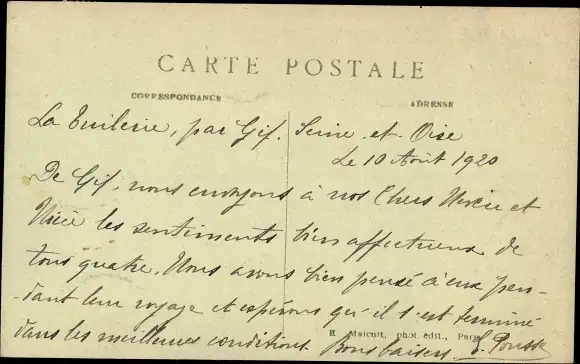 CARTE POSTALE
CORRESPONDANCE
ADRESSE
La Tuilerie, par Gif. Seine-et-Oise
Le 10 Août 1920
De Gif, nous envoyons à nos Chers Neveu et
Nièce les sentiments bien affectueux de
tous quatre. Nous avons bien pensé à eux pen-
-dant leur voyage et espérons qu'il s'est terminé
dans les meilleures conditions. Bons baisers.
Malcuit, phot édit., Paris